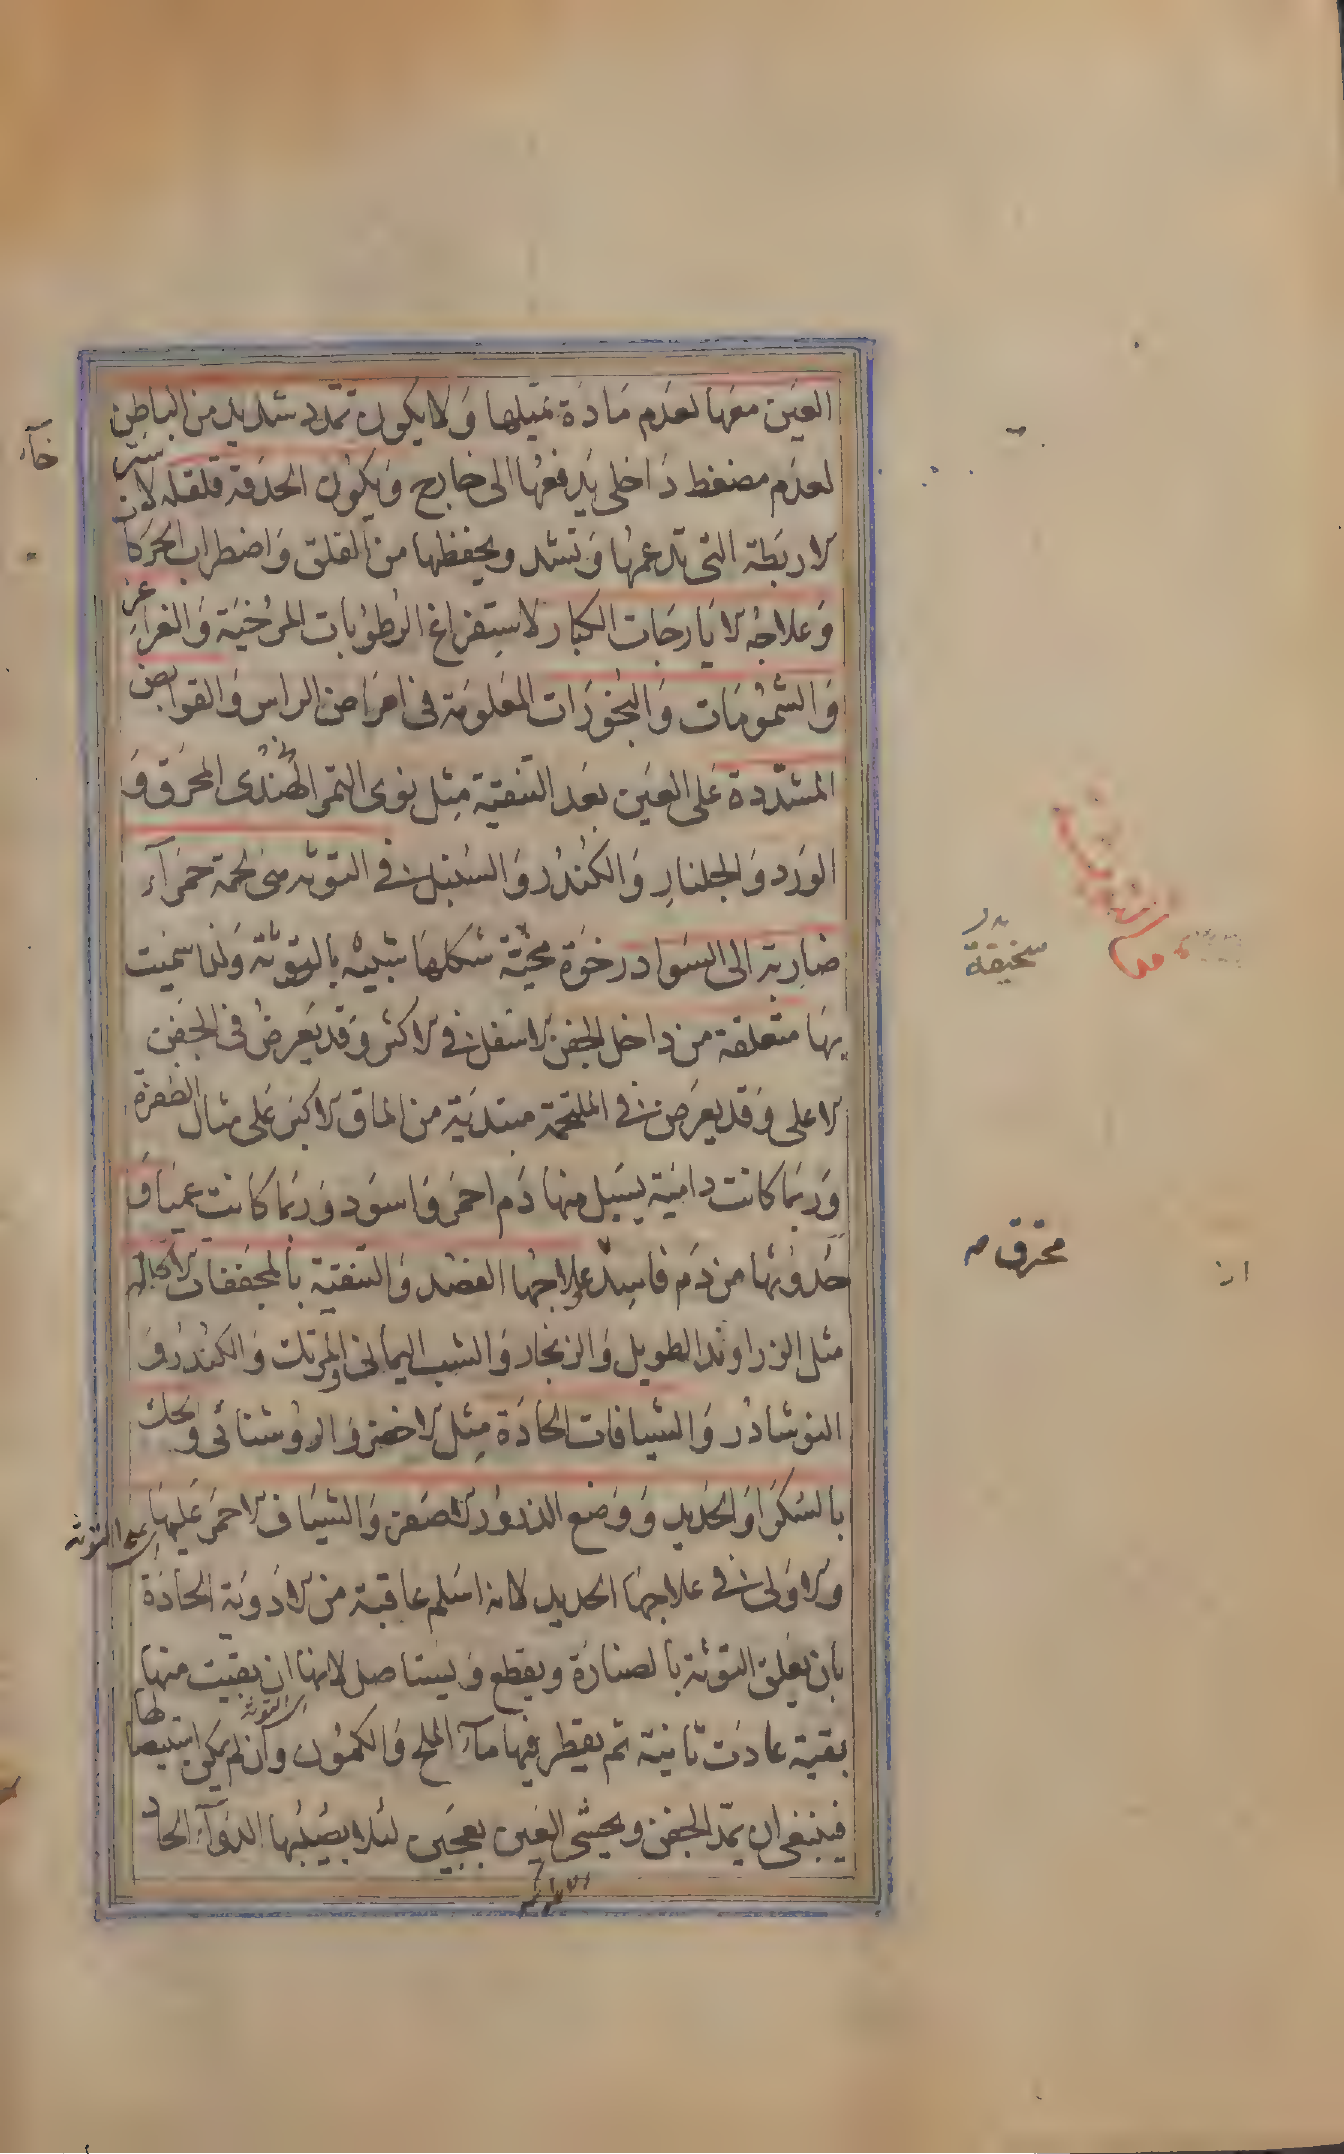 العين معها لعدم مادة تميلها ولا يكون تمدد شديد من الباطن
لعدم مضغط داخلى يدفعها الى خارج ويكون الحدقة قلقله لان
الاربطة التى تدعمها وتشد ويحفظها من القلق واضطراب الحركا
وعلاجه الايارجات الكبار لاستفراغ الرطوبات المرخية والغراغر
والشمومات والبخورات المعلومة فى امراض الراس والقوابض
المشددة على العين بعد التنقية مثل نوى التمر الهندى المحرق و
الورد والجلنار والكندر والسنبل فى التوثه هى لحمة حمرآء
ضاربة الى السواد رخوة محببة شكلها شبيه بالتوثة ولذا سميت
بها متعلقة من داخل الجفن الاسفل فى الاكثر وقد يعرض فى الجفن
الاعلى وقد يعرض فى الملتحمة مبتدئة من الماق الاكبر على مثال الظفرة
وربما كانت دامية يسيل منها دم احمر واسود وربما كانت عمياء و
حدوثها من دم فاسد علاجها الفصد والتنقية بالمجففات الاكالة
مثل الزراوند الطويل والزنجار والشب اليمانى والمرتك والكندر و
النوشادر والشيافات الحادة مثل الاخضر والروشنائى ويحك
بالسكر او الحديد ووضع الذرور الاصفر والشياف الاحمر عليها
اى على التوثة
والاولى فى علاجها الحديد لانه اسلم عاقبة من الادوية الحادة
بان يعلق التوثة بالصنارة ويقطع ويستاصل لانها ان بقيت منها
بقية عادت ثانية ثم يقطر فيها مآء الملح والكمون وان لم يمكن استيصالها
اى التوثة
فينبغى ان يمد الجفن ويحشى العين بعجين لئلا يصيبها الدوآء الحاد
سخيفة
محرق